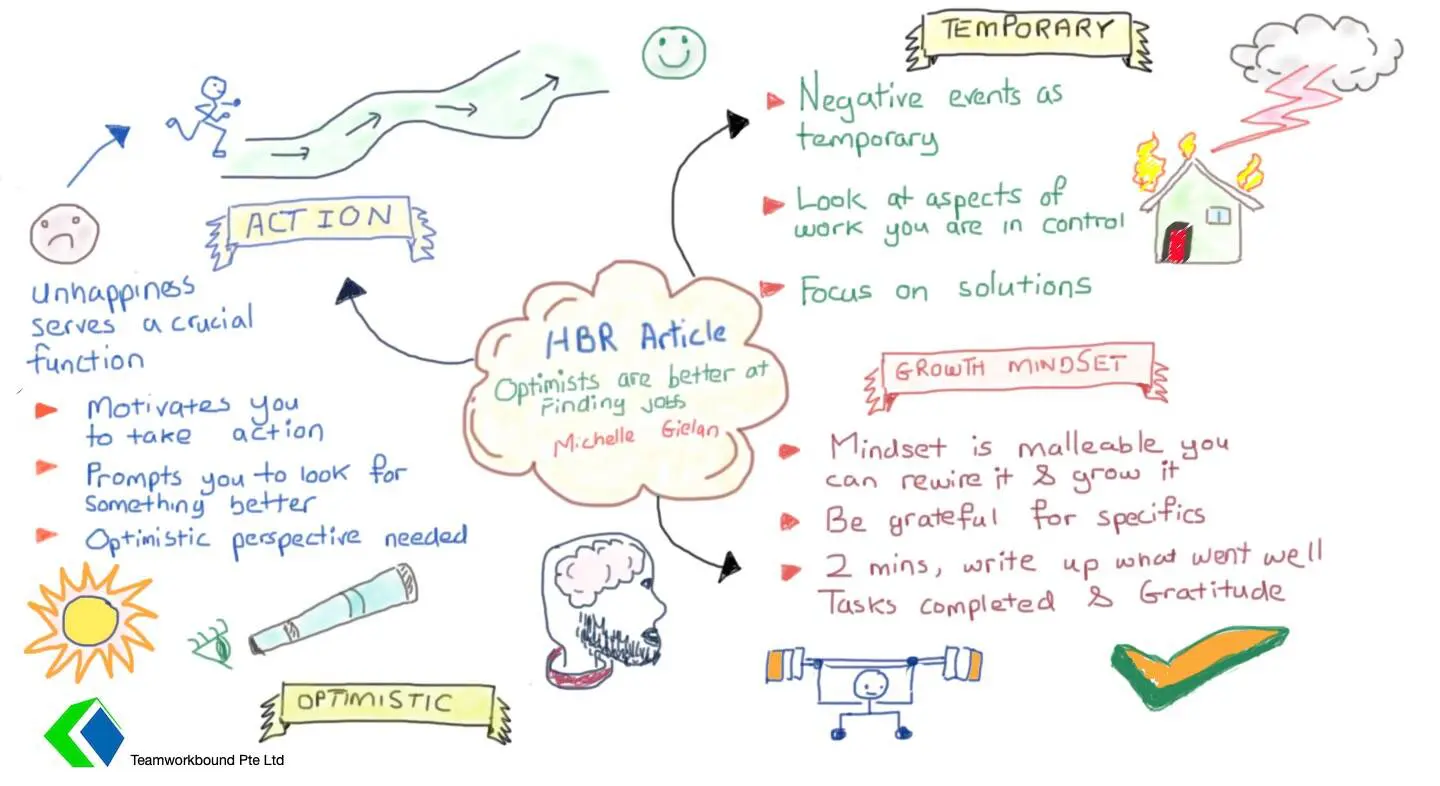 HBR Article
Optimists are better at
Finding Jobs
Michelle Gielan
ACTION
Unhappiness
serves a crucial
function
Motivates you
to take action
Prompts you to look for
something better
Optimistic perspective needed
OPTIMISTIC
Teamworkbound Pte Ltd
TEMPORARY
Negative events as
temporary
Look at aspects of
work you are in control
Focus on solutions
GROWTH MINDSET
Mindset is malleable you
can rewire it & grow it
Be grateful for specifics
2 mins, write up what went well
Tasks completed & Gratitude